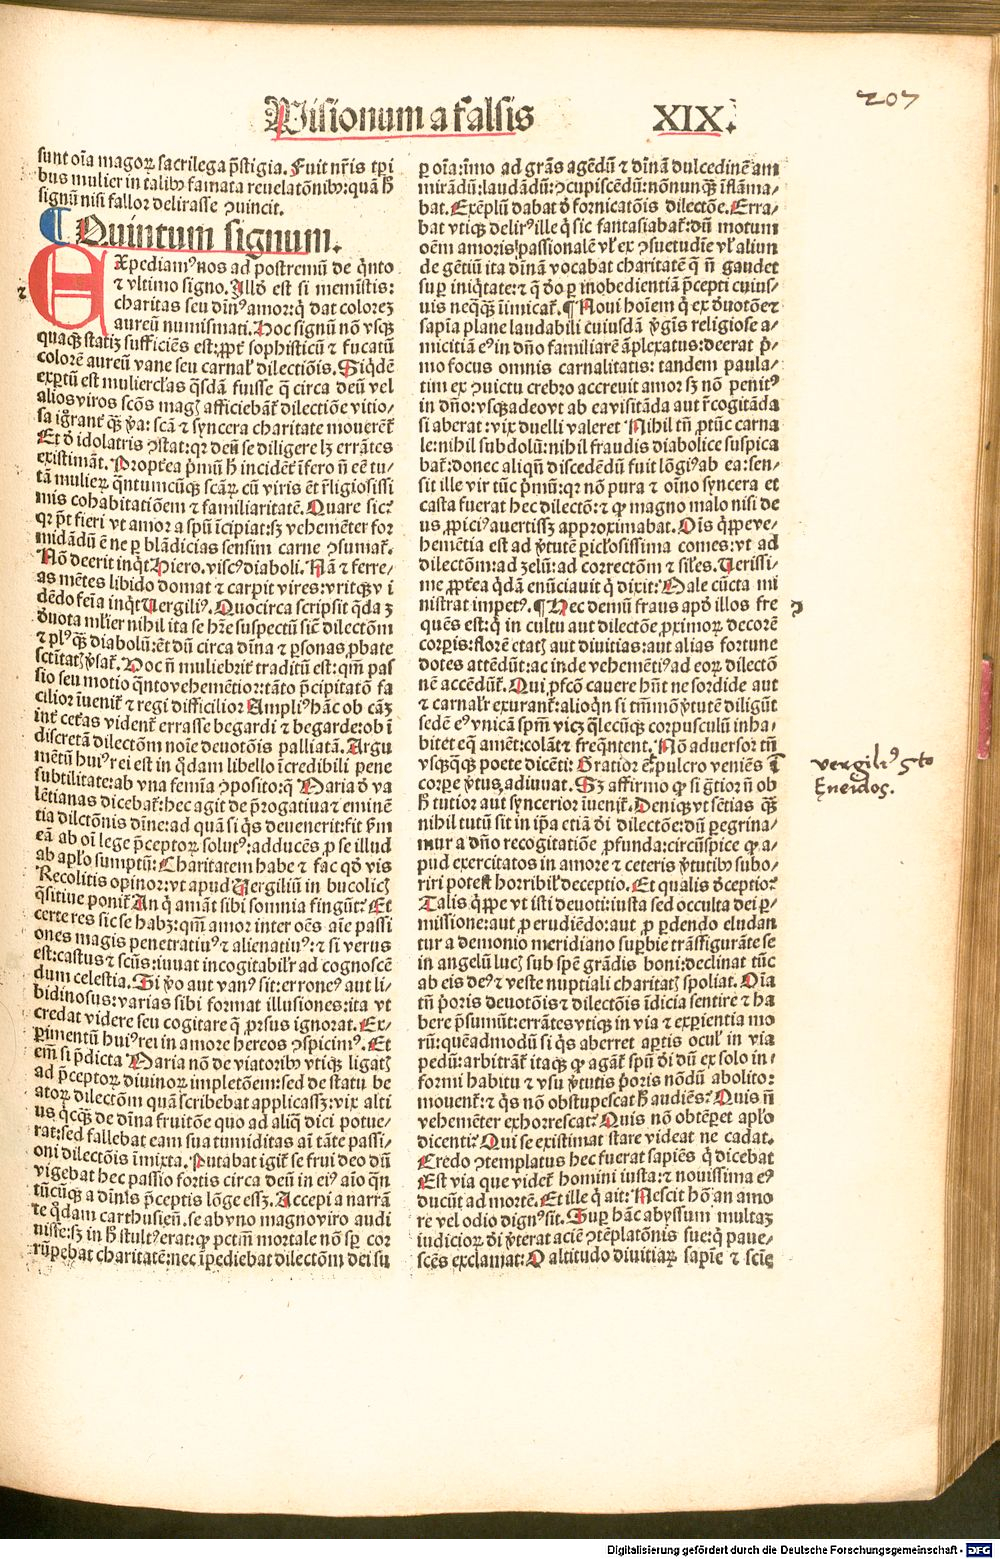 207
Visionum a falsis XIX.
sunt oīa magoꝝ sacrilega p̄stigia. Fuit nr̄is tpi
bus mulier in talibꝰ famata reuelatōnibꝰ: quā ħ
signū nisi fallor delirasse ꝯuincit.
¶ Quintum signum.
EXpediamꝰ nos ad postremū de q̄nto
⁊ vltimo signo. Illď est si meministis:
charitas seu diuinꝰ amor: q̇ dat colorez
aureū numismati. Hoc signū nō vsqꝫ
quaqꝫ statiz sufficiēs est: ꝓpt̄ sophisticū ⁊ fucatū
colorē aureū vane seu carnaƚ dilectiōis. Siq̇dē
exꝑtū est mulierc̄las q̄sdā fuisse q̄ circa deū vel
alios viros scōs magꝭ afficiebāt̄ dilectiōe vitio/
sa igrant̄ qꝫ v̄a: scā ⁊ syncera charitate mouerēt̄
Et ď idolatris ꝯstat: qꝛ deū se diligere lꝫ errātes
existimāt. Propt̄ea p̄mū ħ incidēt̄ īfero ñ eē tu/
tā mulieꝝ q̄ntumcūqꝫ scāꝝ cū viris ēt r̄ligiosissi
mis cohabitatiōem ⁊ familiaritatē. Quare sic?
qꝛ p̄t fieri vt amor a spū īcipiat: sꝫ vehemēter for
midādū ē ne ꝑ blādicias sensim carne ꝯsumat̄.
Nō deerit inq̇t Hiero. viscꝰ diaboli. Nā ⁊ ferre/
as mētes libido domat ⁊ carpit vires: vritqꝫ vi
dēdo fēia inq̇t Vergiliꝰ. Quocirca scripsit q̇da ꝫ
ďuota ml̄ier nihil ita se hr̄e suspectū sic̄ dilectōm
⁊ plꝰqꝫ diabolū: ēt dū circa dīna ⁊ ꝑsonas ꝓbate
sctitatꝭ v̄sat̄. Hoc ñ muliebrit̄ traditū est: qm̄ pas
sio seu motio q̄nto vehemētior: tāto p̄cipitatō fa
cilior īuenit̄ ⁊ regi difficilior Ampliꝰ hāc ob cāꝫ
int̄ cet̄as vident̄ errasse begardi ⁊ begarde: ob ī
discretā dilectōm noīe deuotōis palliatā. Argu
mētū huiꝰ rei est in q̇dam libello īcredibili pene
subtilitate: ab vna femīa ꝯposito: q̄ Maria ď va
lētianas dicebat̄: hec agit de p̄rogatiua ⁊ eminē
tia dilctōnis dīne: ad quā si q̇s deuenerit: fit ẜm
eā ab oī lege p̄ceptoꝝ solutꝰ: adducēs ꝓ se illud
ab aplō sumptū: Charitatem habe ⁊ fac qď vis
Recolitis opinor: vt apud Vergiliū in bucolicꝭ
q̄sitiue ponit̄ An q̇ amāt sibi somnia fingūt? Et
certe res sic se habꝫ: qm̄ amor inter oēs aīe passi
ones magis penetratiuꝰ ⁊ alienatiuꝰ: ⁊ si verus
est: castus ⁊ scūs: iuuat incogitabilr̄ ad cognoscē
dum celestia. Si ṽo aut vanꝰ sit: erroneꝰ aut li/
bidinosus: varias sibi format illusiones: ita vt
credat videre seu cogitare q̄ prsus ignorat. Ex/
ꝑimentū huiꝰ rei in amore hereos ꝯspicimꝰ. Et
em̄ si p̄dicta Maria nō de viatoribꝰ vtiqꝫ ligatꝭ
ad p̄ceptoꝝ diuinoꝝ impletōem: sed de statu be
atoꝝ dilectōm quā scribebat applicassꝫ: vix alti
us q̇cqꝫ de dīna fruitōe quo ad aliq̇ dici potue/
rat: sed fallebat eam sua tumiditas aī tāte passi/
oni dilectōis īmixta. Putabat igit̄ se frui deo dū
vigebat hec passio fortis circa deū in eiꝰ aīo qn̄
tūcūqꝫ a dīnis p̄ceptis lōge essꝫ. Accepi a narrā
te q̇dam carthusień. se ab vno magno viro audi
uisse: sꝫ in ħ stultꝰ erat: ꝙ pctm̄ mortale nō sꝑ cor
rūpebat charitatē: nec īpediebat dilectōm dei su
ꝑ oīa: īmo ad grās agēdū ⁊ dīnā dulcedinē am
mirādū: laudādū: ꝯcupiscēdū: nōnunqꝫ īflāma/
bat. Exēplū dabat ď fornicatōis dilectōe. Erra/
bat vtiqꝫ delirꝰ ille q̇ sic fantasiabat̄: dū motum
oēm amoris passionalē vƚ ex ꝯsuetudīe vƚ aliun
de gētiū ita dīnā vocabat charitatē q̄ ñ gaudet
suꝑ iniq̇tate: ⁊ q̄ ďo ꝑ inobedientiā p̄cepti cuius/
uis neqꝫqꝫ īimicat̄. ¶ Noui hoīem q̇ ex ďuotōe ⁊
sapīa plane laudabili cuiusdā ṽgīs religiose a/
micitiā eꝰ in dn̄o familiarē āplexatus: deerat p̄/
mo focus omnis carnalitatis: tandem paula/
tim ex ꝯuictu crebro accreuit amor sꝫ nō penitꝰ
in dn̄o: vsqꝫadeo vt ab ea visitāda aut r̄cogitāda
si aberat: vix diuelli valeret Nihil tn̄ ꝓtūc carna
le: nihil subdolū: nihil fraudis diabolice suspica
bat̄: donec aliqn̄ discedēdū fuit lōgiꝰ ab ea: sen/
sit ille vir tūc p̄mū: qꝛ nō pura ⁊ oīno syncera et
casta fuerat hec dilectō: ⁊ ꝙ magno malo nisi de
us ꝓpiciꝰ auertissꝫ approximabat. Oīs q̇ppe ve/
hemētia est ad ṽtutē pic̄losissima comes: vt ad
dilectōm: ad zelū: ad correctōm ⁊ siƚes. Verissi/
me ꝓpt̄ea q̇dā enūciauit q̇ dixit: Male cūcta mi
nistrat impetꝰ. ¶ Nec demū fraus apď illos fre
quēs est: q̇ in cultu aut dilectōe ꝓximoꝝ decorē
corꝑis: florē etatꝭ aut diuitias: aut alias fortune
dotes attēdūt: ac inde vehemētiꝰ ad eoꝝ dilectō
nē accedūt̄. Qui ꝓfcō cauere hn̄t ne sordide aut
⁊ carnalr̄ exurant̄: alioq̇n si tm̄mō ṽtutē diligūt
sedē eꝰ vnicā spm̄ vicꝫ q̄lecūqꝫ corpusculū inha/
bitet eq̄ amēt: colāt ⁊ freq̄ntent. Nō aduersor tn̄
vsqꝫqꝫ poete dicēti: Gratior ē pulcro veniēs ī
corꝑe ṽtus adiuuat. Sꝫ affirmo ꝙ si ḡtior ñ ob
ħ tutior aut syncerior īuenit̄. Deniqꝫ vt sētias qꝫ
nihil tutū sit in ip̄a etiā ďi dilectōe: dū ꝑegrina/
mur a dn̄o recogitatiōe ꝓfunda: circūspice ꝙ a/
pud exercitatos in amore ⁊ ceteris ṽtutibꝰ subo/
riri potest horribiƚ deceptio. Et qualis ďceptio?
Talis q̇ppe vt isti deuoti: iusta sed occulta dei ꝑ/
missione: aut ꝓ erudiēdo: aut ꝓ ꝑdendo eludan
tur a demonio meridiano suꝑbie trāsfigurāte se
in angelū lucꝭ sub spē grādis boni: declinat tūc
ab eis deꝰ ⁊ veste nuptiali charitatꝭ spoliat. Oīa
tn̄ p̄oris deuotōis ⁊ dilectōis īdicia sentire ⁊ ha
bere p̄sumūt: errātes vtiqꝫ in via ⁊ exꝑientia mo
rū: quēadmodū si q̇s aberret aꝑtis ocuƚ in via
pedū: arbitrāt̄ itaqꝫ ꝙ agāt̄ spū ďi dū ex solo in/
formi habitu ⁊ vsu ṽtutis p̄oris nōdū abolito:
mouent̄: ⁊ q̇s nō obstupescat ħ audiēs? Quis ñ
vehemēter exhorrescat? Quis nō obtēꝑet aplō
dicenti? Qui se existimat stare videat ne cadat.
Credo ꝯtemplatus hec fuerat sapiēs q̇ dicebat
Est via que videt̄ homini iusta: ⁊ nouissima eꝰ
ducūt ad mortē. Et ille q̇ ait: Nescit hō an amo
re vel odio dignꝰ sit. Suꝑ hāc abyssum multaꝫ
iudicioꝝ ďi ṽterat aciē ꝯtēplatōnis sue: q̇ paue/
scēs exclamat: O altitudo diuitiaꝝ sapīe ⁊ sciē
vergiliꝰ 5to
Eneidos.